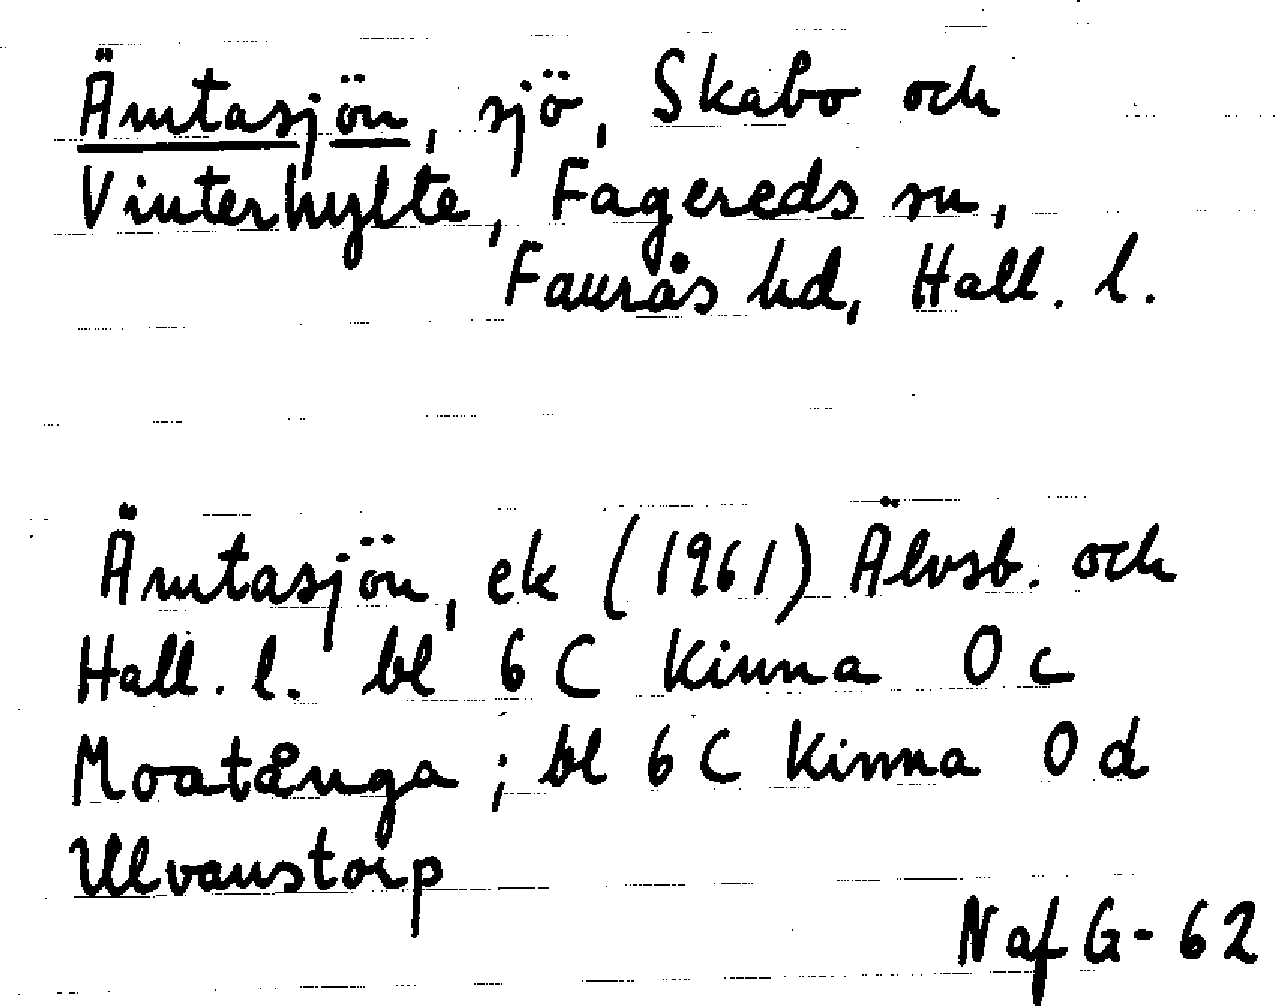 Ämtasjön, sjö, Skabo och
Vinterhylte, Fagereds sn,
Faurås hd, Hall. l.
Ämtasjön, ek (1961) Älvsb. och
Hall. l. bl 6 C Kinna 0 c
Moatånga; bl 6 C Kinna 0 d
Ulvanstorp
N af G-62